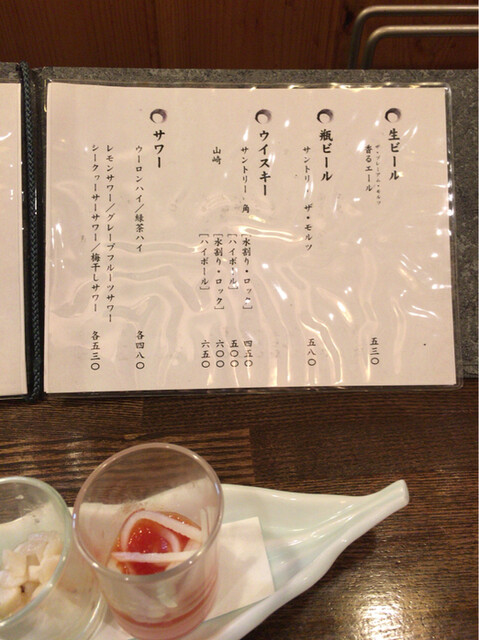 生ビール
ザ・プレミアム・モルツ
香るエール 五三〇
瓶ビール
サントリー ザ・モルツ 五八〇
ウイスキー
サントリー 角 [水割り・ロック] 四五〇
[ハイボール] 五〇〇
山崎 [水割り・ロック] 六〇〇
[ハイボール] 六五〇
サワー
ウーロンハイ／緑茶ハイ 各四八〇
レモンサワー／グレープフルーツサワー
シークヮーサーサワー／梅干しサワー 各五三〇